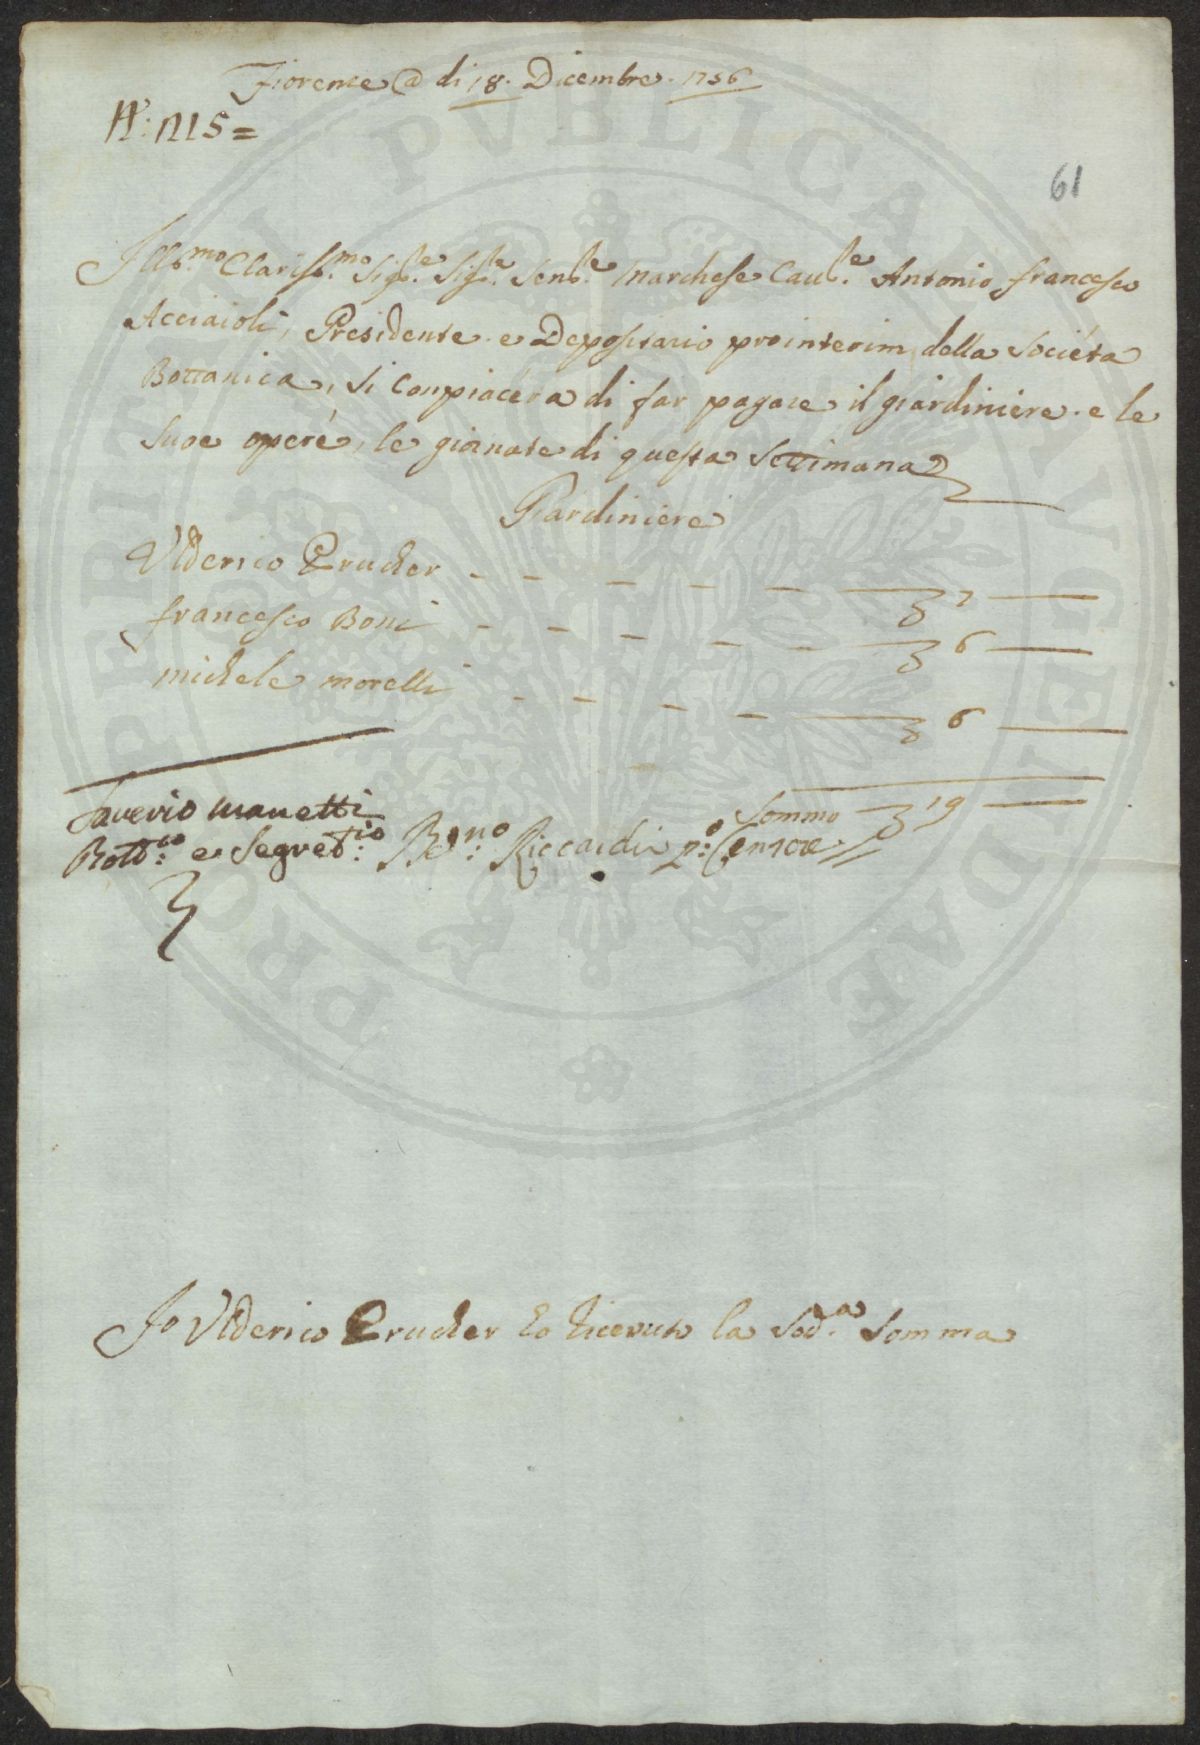 Fiorenze @ di 18. Dicembre. 1756
N: 1215=
61
Illss.mo Clariss.mo Sig.re Sig.re Sen.re Marchese Caul.e Antonio francesco
Acciaioli, Presidente e Depositario prointerim della Società
Bottanica, si Conpiacera di far pagare il giardiniere e le
Suoe operé, le giornate di questa Settimana
Giardiniere
Ulderico Prucker - - - - - 7
francesco Boni - - - - - 6
michele morelli - - - - 6
Somma 19
Saverio Manetti
Bott.co e Segret.rio Be.no Riccardi p.o Censore
Io Ulderico Prucker ho riceuuto la Sod.a Somma
PROPERITATI PVBLICAE AVGENDAE